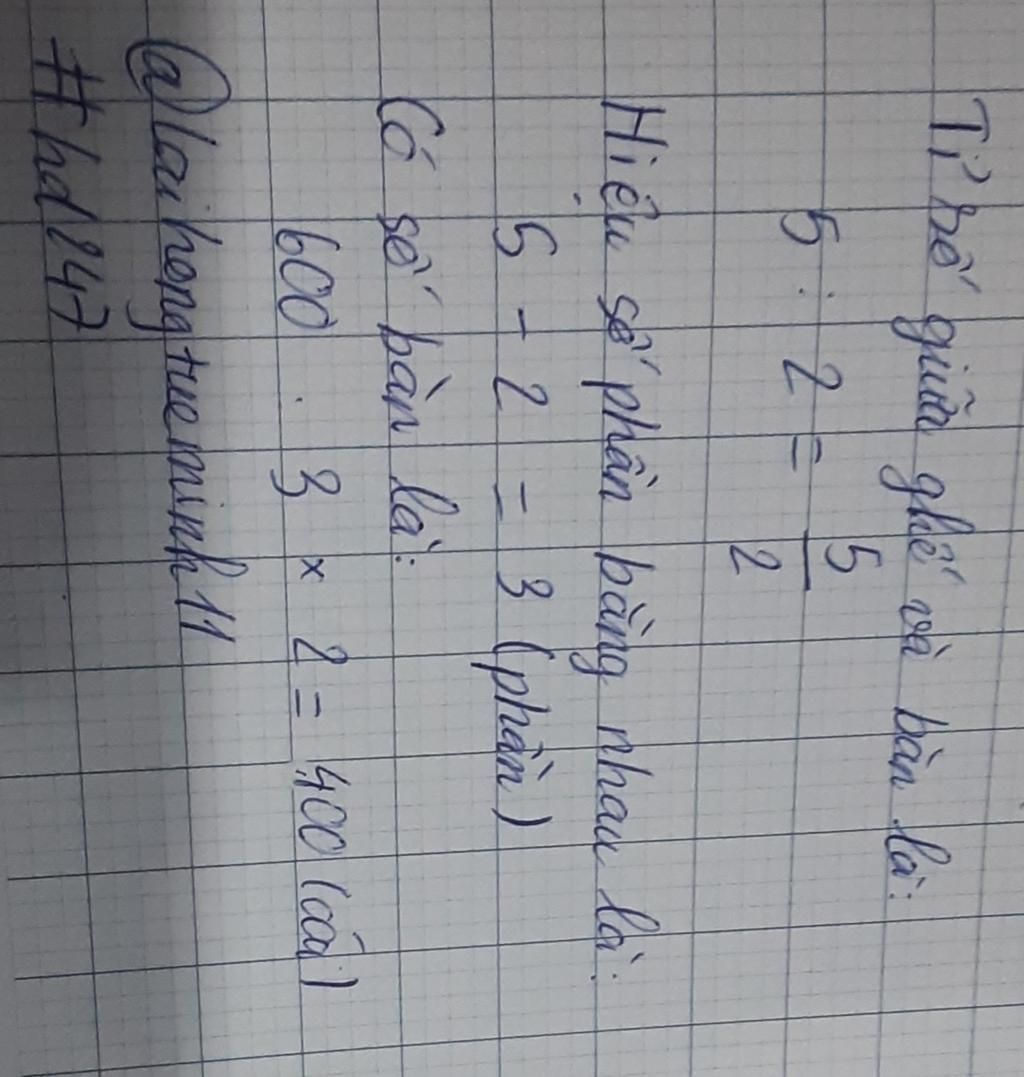 Tỉ số giữa ghế và bàn là:
5 : 2 = 5/2
Hiệu số phần bằng nhau là:
5 - 2 = 3 (phần)
Có số bàn là:
600 : 3 x 2 = 400 (cái)
@laihongtueminh11
#hd247